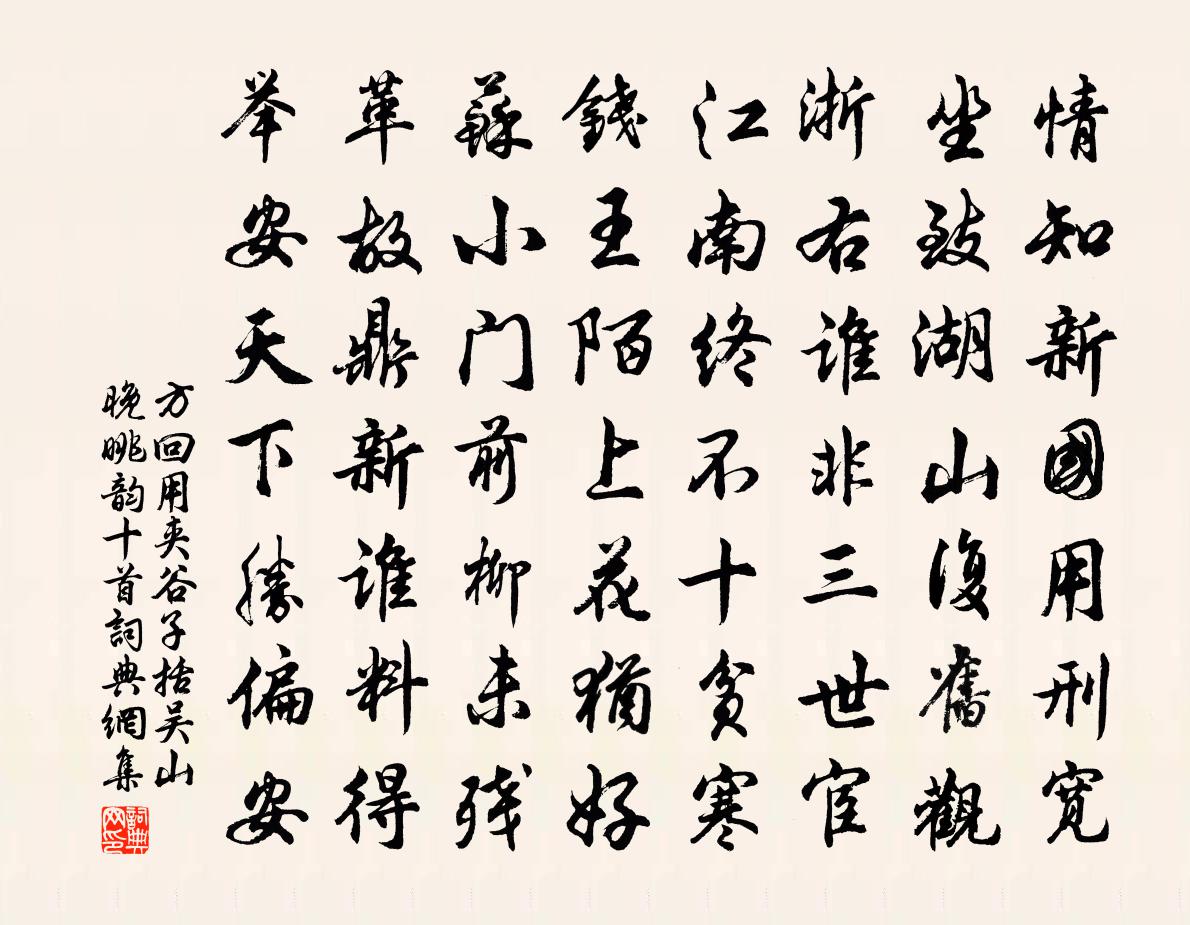 情知新國用刑寬
坐致湖山復舊觀
浙右誰非三世宦
江南終不十分寒
錢王陌上花猶好
蘇小門前柳未残
革故鼎新誰料得
举安天下勝偏安
方回用夹谷子括吴山
晚眺韵十首詞典網集
詞典
网印